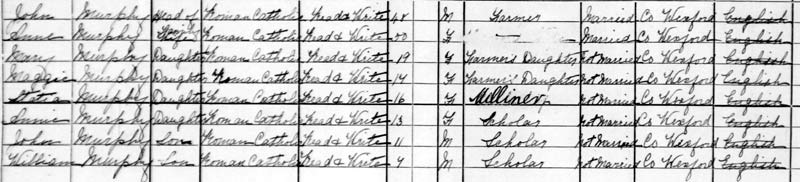 John Murphy Head of Roman Catholic Read & Write 48 M Farmer Married Co Wexford English
Annie Murphy Roman Catholic Read & Write F — Married Co Wexford English
Mary Murphy Daughter Roman Catholic Read & Write 19 F Farmers Daughter Not Married Co Wexford English
Maggie Murphy Daughter Roman Catholic Read & Write 17 F Farmers Daughter Not Married Co Wexford English
Statia Murphy Daughter Roman Catholic Read & Write 16 F Milliner Not Married Co Wexford English
Annie Murphy Daughter Roman Catholic Read & Write 13 F Scholar Not Married Co Wexford English
John Murphy Son Roman Catholic Read & Write 11 M Scholar Not Married Co Wexford English
William Murphy Son Roman Catholic Read & Write M Scholar Not Married Co Wexford English